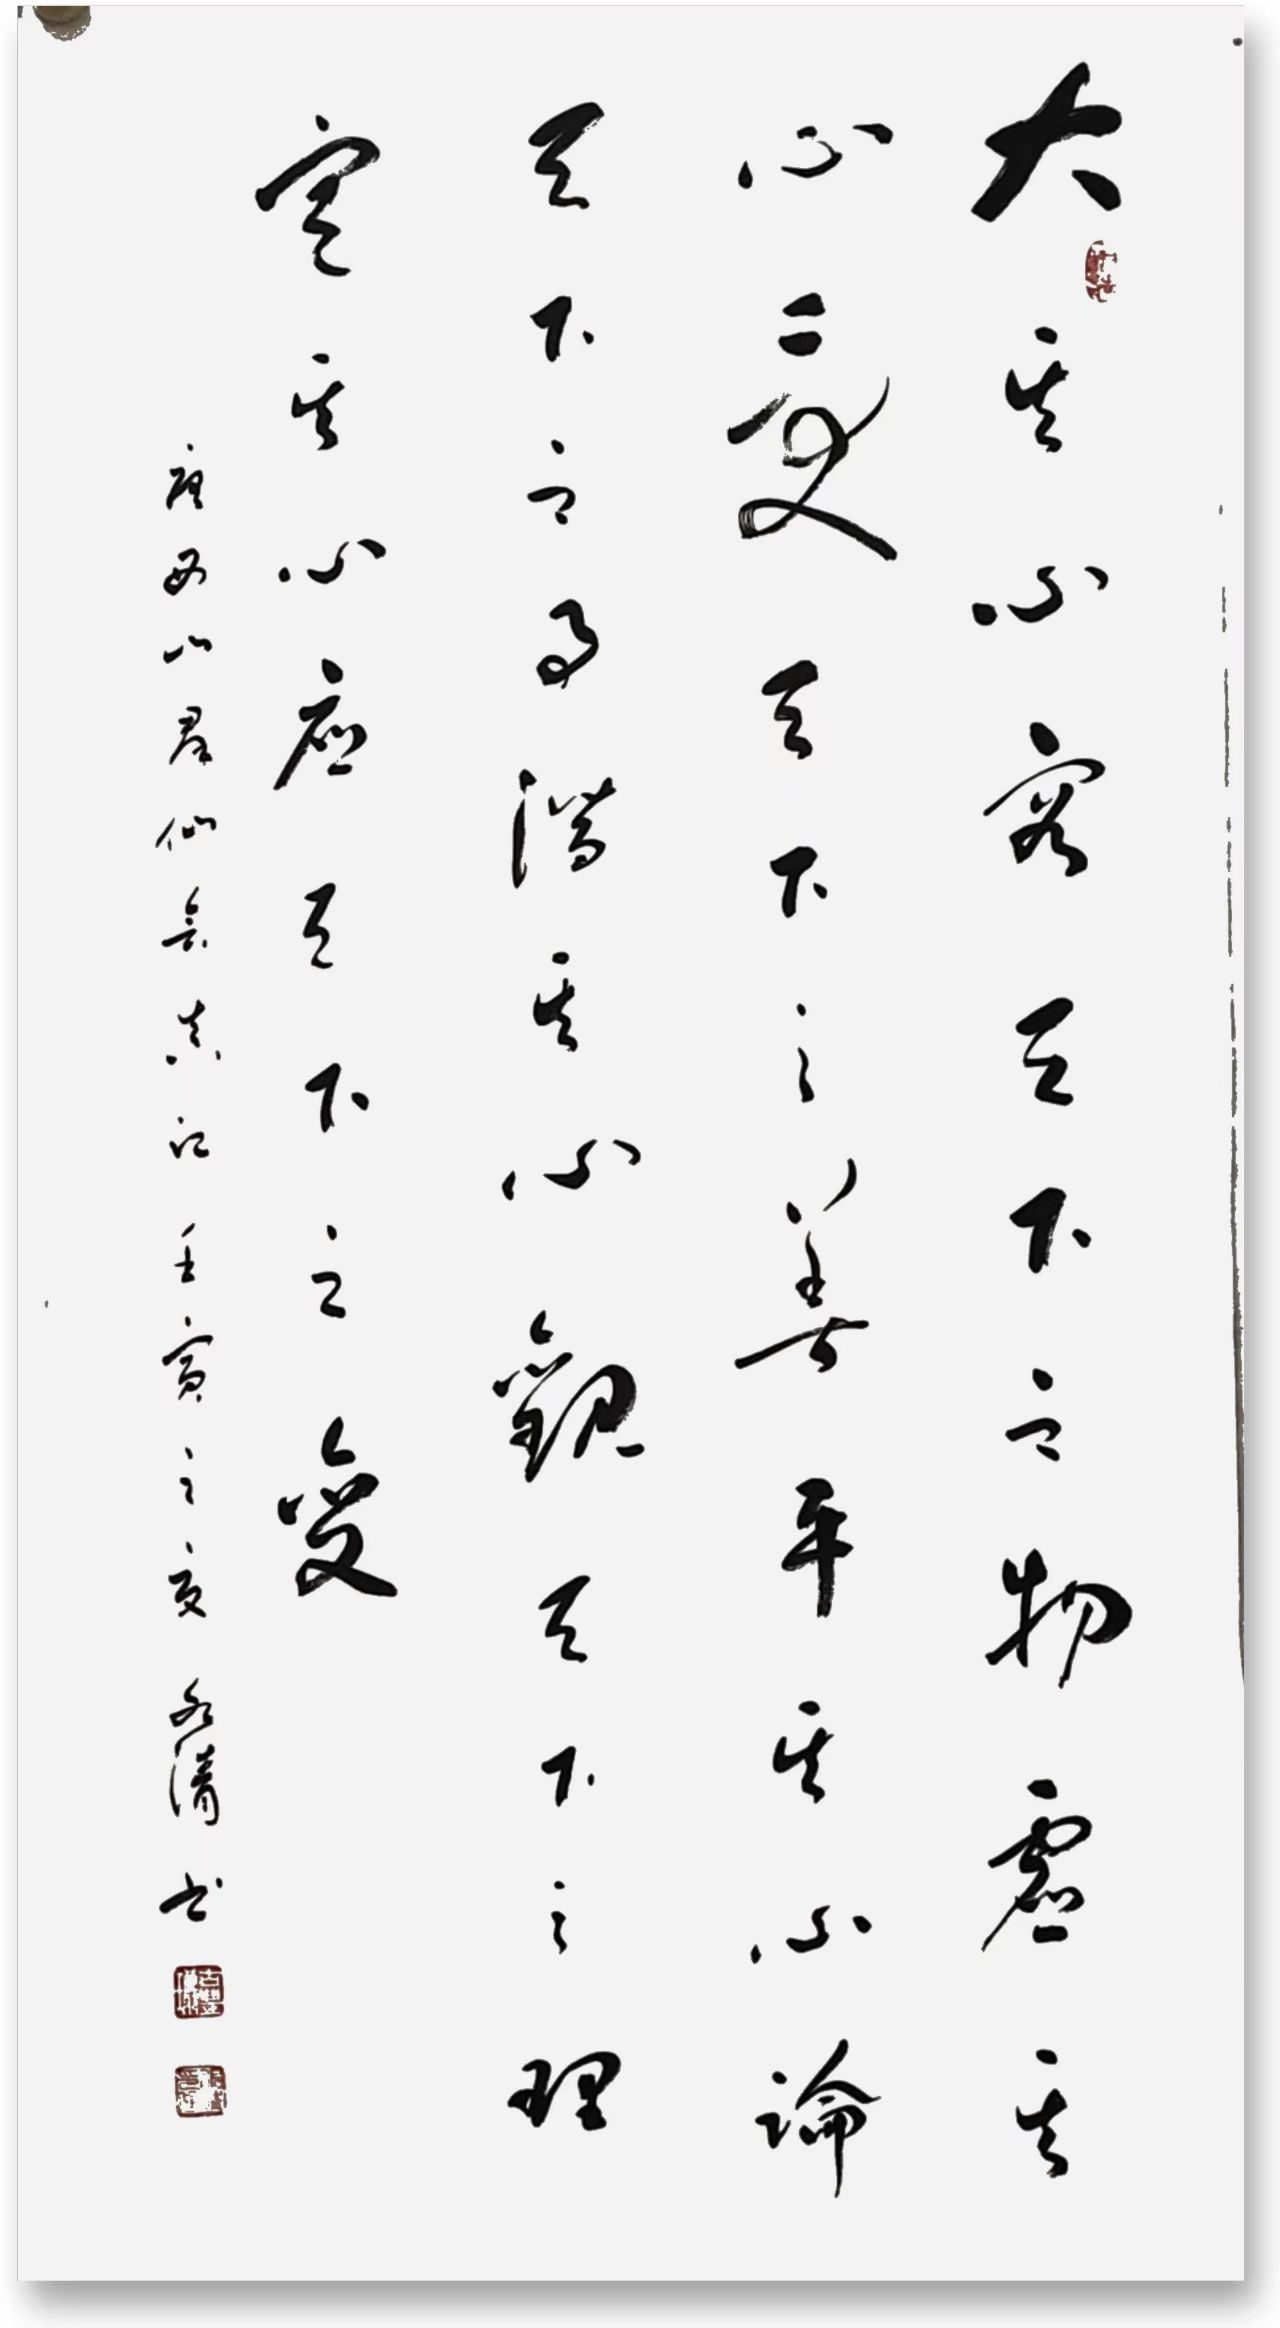 大其心容天下之物虛其
心受天下之善平其心論
天下之事潛其心觀天下之理
定其心應天下之變
唐西山群仙會真記 壬寅之夏 永清书